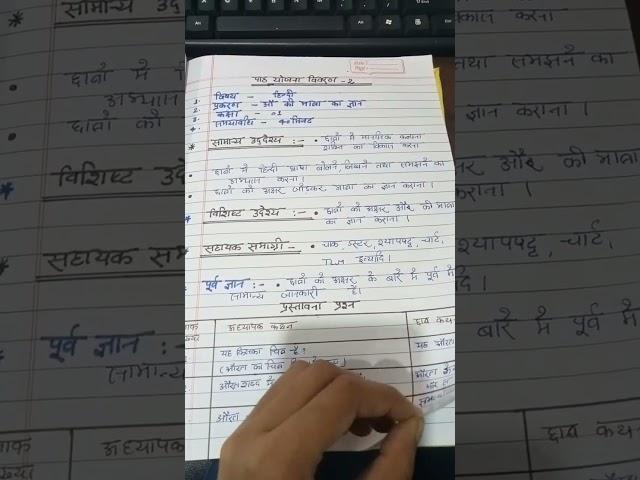 पाठ योजना विवरण - 2
1. विषय - हिन्दी
2. प्रकरण - औ की मात्रा का ज्ञान
3. कक्षा -
4. समयावधि - 40 मिनट
* सामान्य उद्देश्य :- • छात्रों में मानसिक कल्पना
शक्ति का विकास करना
• छात्रों में हिन्दी भाषा बोलने, लिखने तथा समझने का
अभ्यास करना।
• छात्रों को अक्षर जोड़कर मात्रा का ज्ञान कराना।
* विशिष्ट उद्देश्य :- • छात्रों को अक्षर और की मात्रा
का ज्ञान कराना।
सहायक समाग्री - • चाक, डस्टर, श्यापपट्ट, चार्ट,
TLM इत्यादि।
* पूर्व ज्ञान :- • छात्रों को अक्षर के बारे में पूर्व में
सामान्य जानकारी है।
प्रस्तावना प्रश्न
अध्यापक कथन
छात्र कथन
यह किसका चित्र है?
यह औरत
(औरत का चित्र
औरत शब्द में
औरत